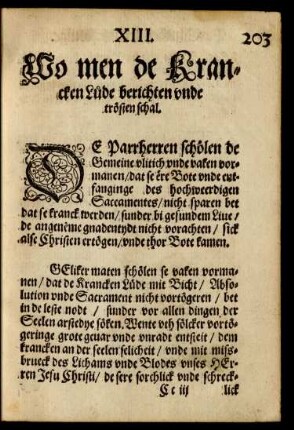 XIII.
203
Wo men de Kran-
cken Lüde berichten vnde
trösten schal.
DE Parrherren schölen de
Gemeine vlitich vnde vaken vor-
manen / dat se ere Bote vnde ent-
fanginge des hochwerdigen
Sacramentes / nicht sparen bet
dat se kranck werden / sunder bi gesundem Liue /
de angenéme gnadentydt nicht vorachten / sick
alse Christen ertögen / vnde thor Bote kamen.
GEliker maten schölen se vaken vorma-
nen / dat de Krancken Lüde mit Bicht / Abso-
lution vnde Sacrament nicht vortögeren / bet
in de leste nodt / sunder vor allen dingen der
Seelen arstedye söken. Wente vth sölcker vortö-
geringe grote geuar vnde vnradt entsteit / dem
krancken an der seelen selicheit / vnde mit miss-
brueck des Lichams vnde Blodes vnses HEr-
ren Jesu Christi / de sere sorchlick vnde schreck-
Cc iij
lick